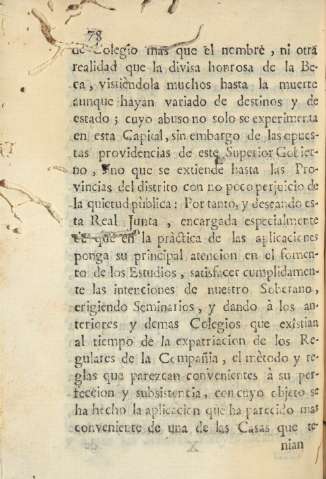 78
de Colegio mas que el nombre, ni otra
realidad que la divisa honrosa de la Be-
ca, vistiendola muchos hasta la muerte
aunque hayan variado de destinos y de
estado; cuyo abuso no solo se experimenta
en esta Capital, sin embargo de las opues-
tas providencias de este Superior Gobier-
no, sino que se extiende hasta las Pro-
vincias del distrito con no poco perjuicio de
la quietud pública: Por tanto, y deseando es-
ta Real Junta, encargada especialmente
de que en la práctica de las aplicaciones
ponga su principal atencion en el fomen-
to de los Estudios, satisfacer cumplidamen-
te las intenciones de nuestro Soberano,
erigiendo Seminarios, y dando à los an-
teriores y demas Colegios que existian
al tiempo de la expatriacion de los Re-
gulares de la Compañia, el mètodo y re-
glas que parezcan convenientes à su per-
feccion y subsistentia, con cuyo objeto se
ha hecho la aplicacion que ha parecido mas
conveniente de una de las Casas que te-
nian